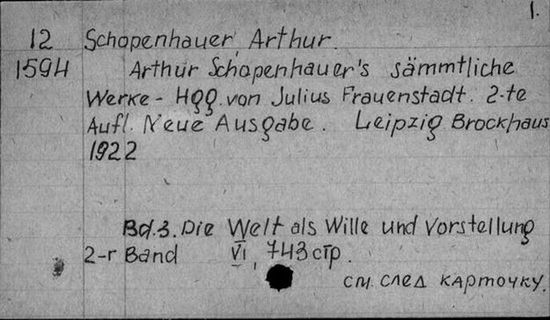 1.
12 Schopenhauer, Arthur.
1594 Arthur Schopenhauer's sämmtliche
Werke - Hgg. von Julius Frauenstadt. 2-te
Aufl. Neue Ausgabe. Leipzig Brockhaus
1922
Bd.3. Die Welt als Wille und Vorstellung
2-r Band VI, 743 стр.
см. след карточку.